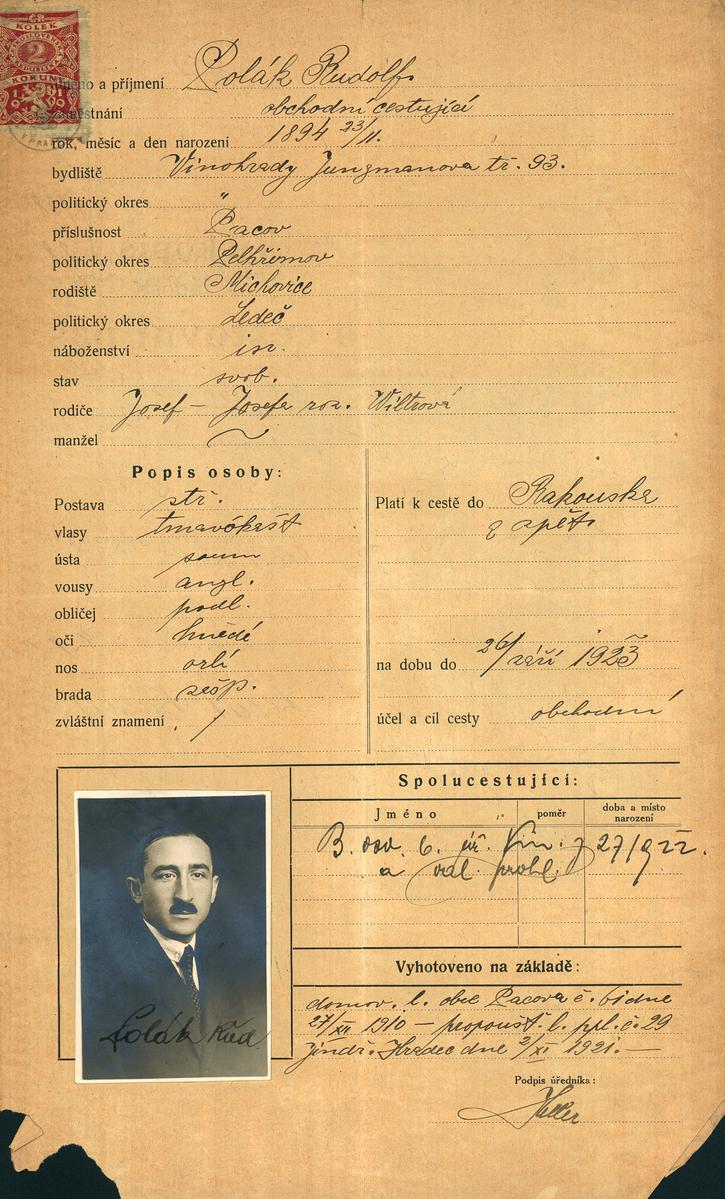 ČR
KOLEK
2
KORUNY
méno a příjmení Polák Rudolf
městnání obchodní cestující
rok, měsíc a den narození 1894 23/11.
bydliště Vinohrady Jungmanova tř. 93.
politický okres "
příslušnost Pacov
politický okres Pelhřimov
rodiště Michovice
politický okres Ledeč
náboženství isr.
stav svob.
rodiče Josef – Josefa roz. Wiltrová
manžel
Popis osoby:
Postava stř.
vlasy tmavokašt
ústa soum
vousy angl.
obličej podl.
oči hnědé
nos orlí
brada
zvláštní znamení /
Platí k cestě do Rakouska
a zpět
na dobu do 26/ září 1923
účel a cíl cesty obchodní
Spolucestující:
Jméno poměr doba a místo narození
B. osv. 6. Vin. z 27/9 22.
a
Polák Rud
Vyhotoveno na základě:
domov. l. obce Pacova č. 61 dne
27/XII 1910 — propoušt. l. ppl. č. 29
Jindř. Hradec dne 2/XI 1921. —
Podpis úředníka: